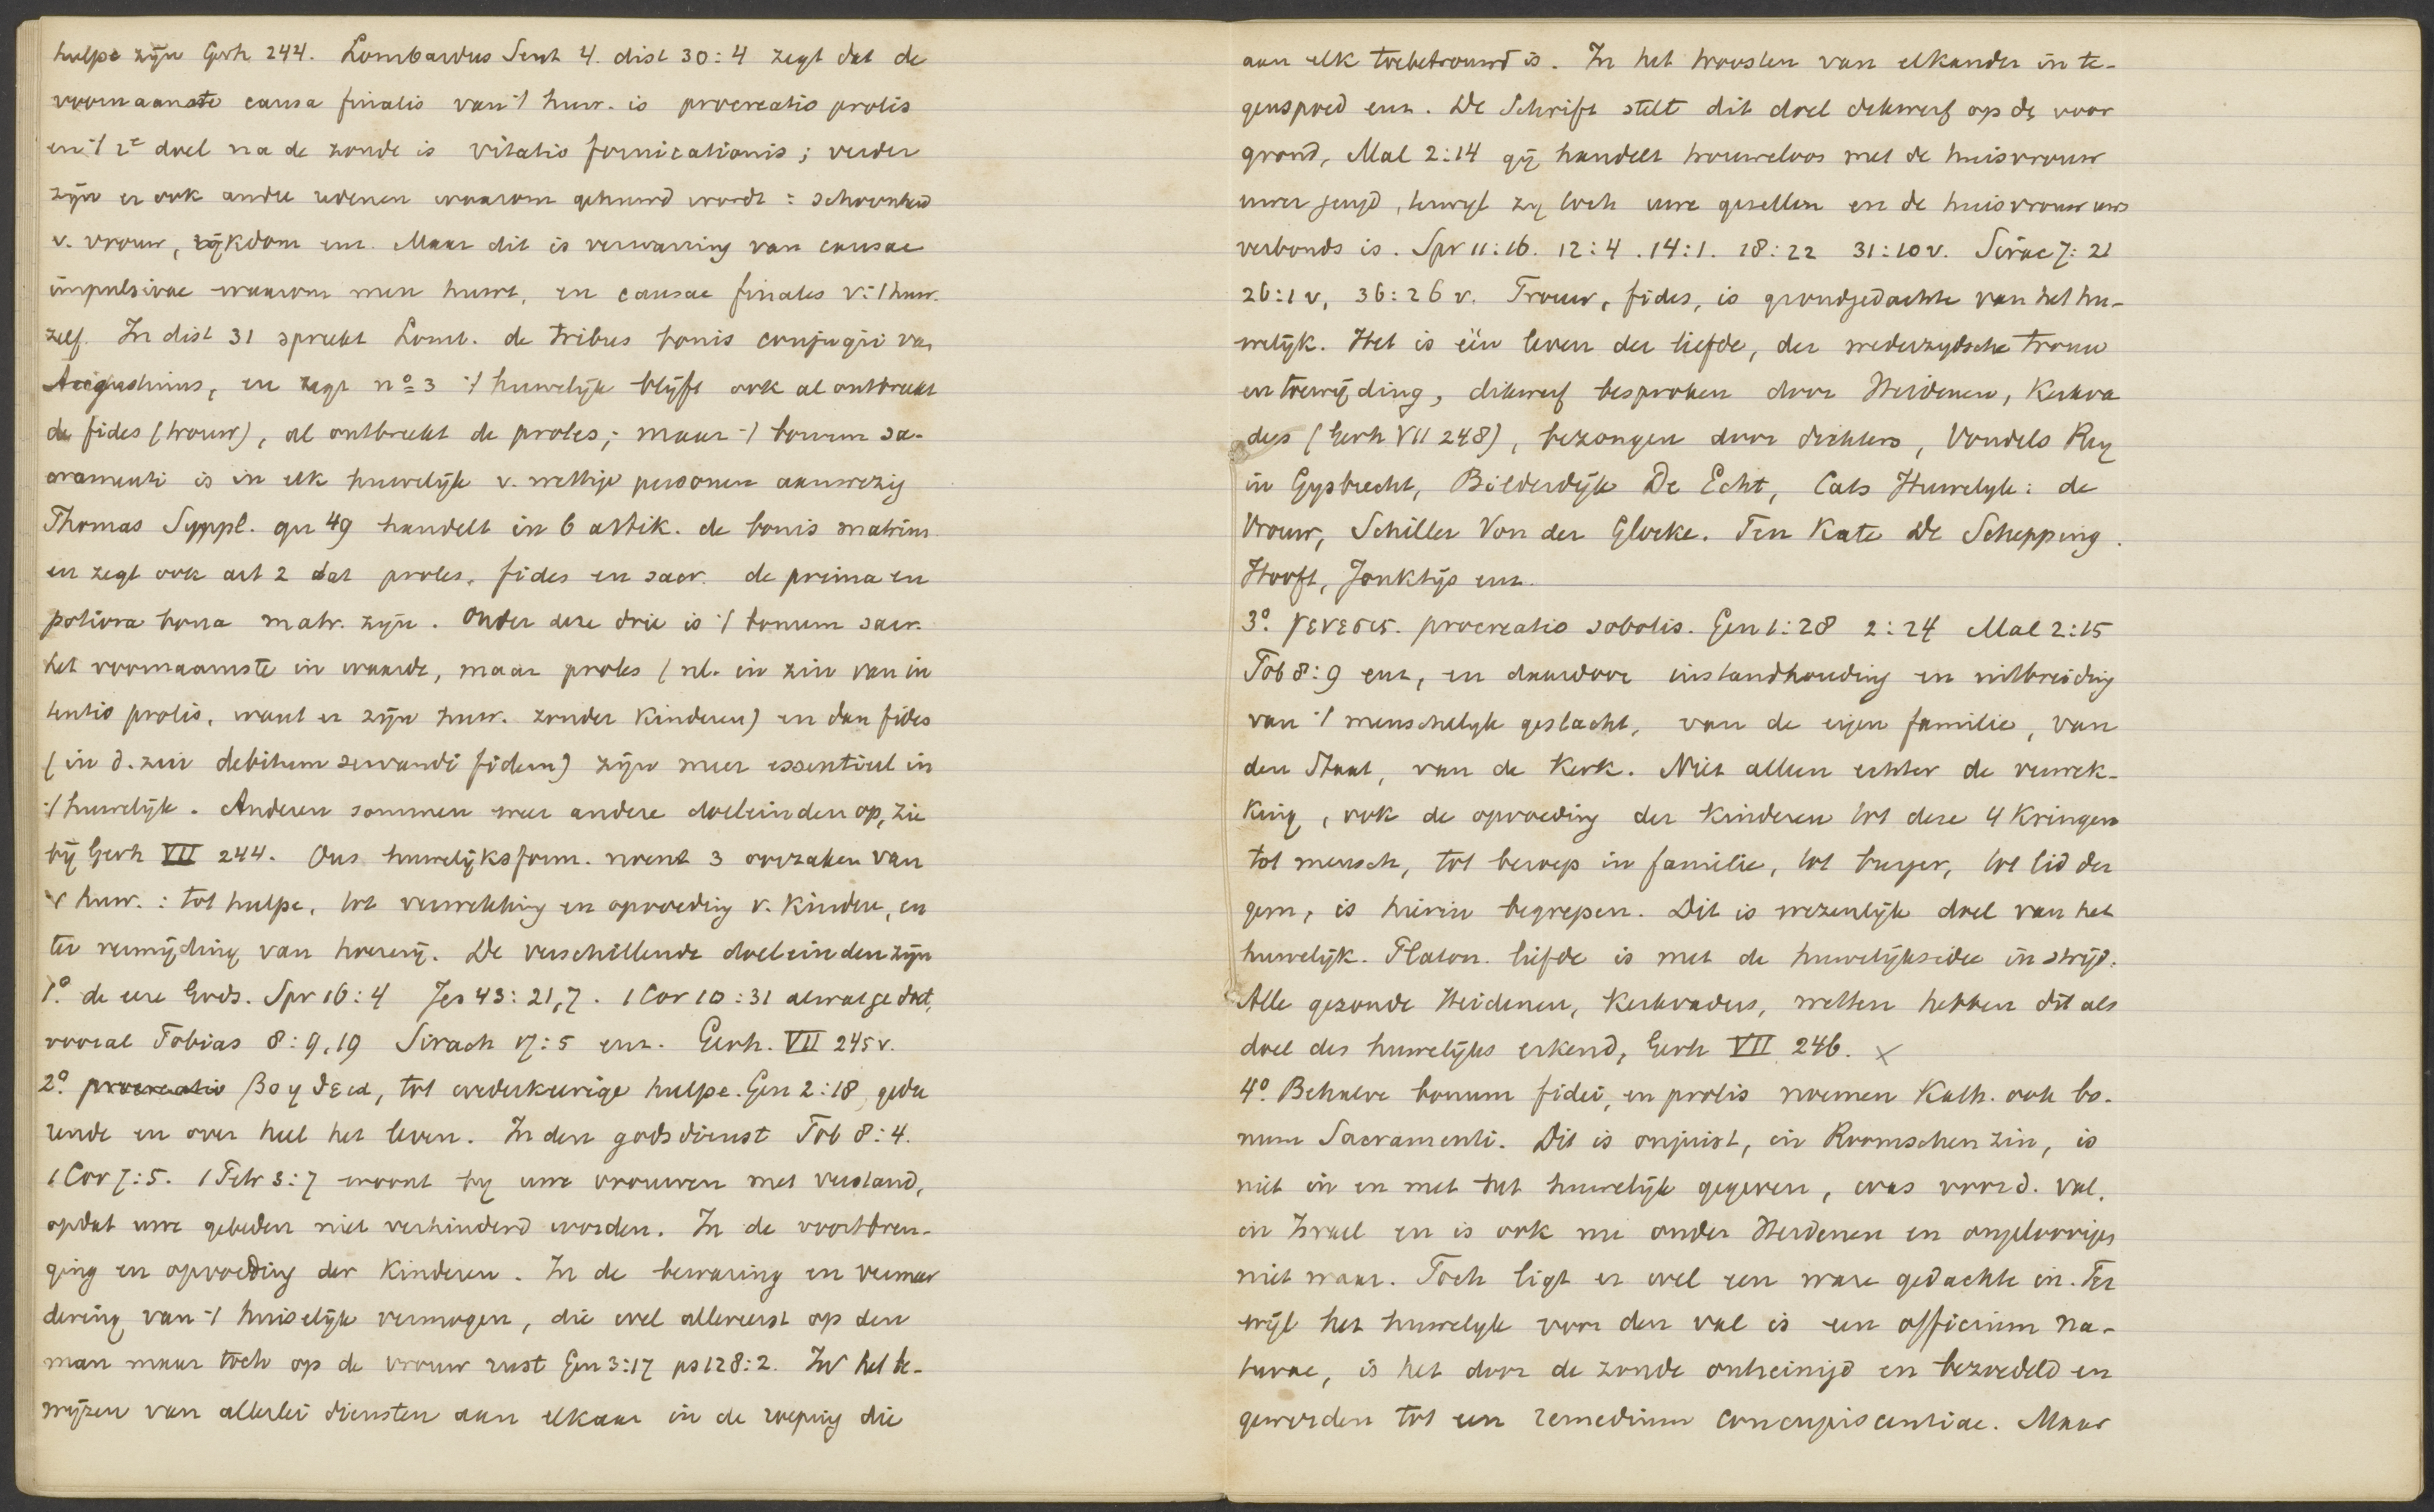 hulpe zijn Gerh. 244. Lombardus Sent 4. dist 30:4 zegt dat de
voornaamste causa finalis van 't huw. is procreatio prolis
en 't 2e doel na de zonde is vitatio fornicationis; verder
zijn er ook andre redenen waarom gehuwd wordt: schoonheid
v. vrouw, rijkdom enz. Maar dit is verwarring van causae
impulsivae waarom men huwt, en causae finales v. 't huw.
zelf. In dist 31 spreekt Lomb. de tribus bonis conjugii van
Augustinus, en zegt no 3 't huwelijk blijft ook al ontbreekt
de fides (trouw), al ontbreekt de proles; maar 't bonum sa-
cramenti is in elk huwelijk v. wettige personen aanwezig
Thomas Suppl. qu 49 handelt in 6 artik. de bonis matrim.
en zegt ook art 2 dat proles, fides en sacr. de prima en
potiora bona matr. zijn. Onder deze drie is 't bonum sacr.
het voornaamste in waarde, maar proles (nl. in zin van in
tentio prolis, want er zijn huw. zonder kinderen) en dan fides
(in d. zin debitum servandi fidem) zijn meer essentieel in
't huwelijk. Anderen sommen weer andere doeleinden op, zie
bij Gerh VII 244. Ons huwelijksform. noemt 3 oorzaken van
't huw.: tot hulpe, tot verwekking en opvoeding v. kindren, en
ter vermijding van hoererij. De verschillende doeleinden zijn
1o. de eere Gods. Spr 16:4 Jes 43:21,7. 1 Cor 10:31 al wat ge doet,
vooral Tobias 8:9,19 Sirach 17:5 enz. Gerh. VII 245 v.
2o. procreatio βοηθεια, tot wederkeerige hulpe. Gen 2:18, gedu
rende en over heel het leven. In den godsdienst Tob 8:4.
1 Cor 7:5. 1 Petr 3:7 woont bij uwe vrouwen met verstand,
opdat uwe gebeden niet verhinderd worden. In de voortbren-
ging en opvoeding der kinderen. In de bewaring en vermeer
dering van 't huiselijk vermogen, die wel allereerst op den
man maar toch op de vrouw rust Gen 3:17 ps 128:2. In het be-
wijzen van allerlei diensten aan elkaar in de roeping die
aan elk toebetrouwd is. In het troosten van elkander in te-
genspoed enz. De Schrift stelt dit doel dikwerf op de voor
grond, Mal 2:14 gij handelt trouweloos met de huisvrouw
uwer jeugd, terwijl zij toch uwe gezellin en de huisvrouw uws
verbonds is. Spr 11:16. 12:4. 14:1. 18:22 31:10 v. Sirac 7:21
26:1 v, 36:26 v. Trouw, fides, is grondgedachte van het hu-
welijk. Het is een leven der liefde, der wederzijdsche trouw
en toewijding, dikwerf besproken door Heidenen, Kerkva
ders (Gerh VII 248), bezongen door dichters, Vondels Rey
in Gysbrecht, Bilderdijk De Echt, Cats Huwelyk: de
Vrouw, Schiller Von der Glocke. Ten Kate De Schepping.
Hooft, Jonktijs enz.
3o. γενεσις. procreatio sobolis. Gen 1:28 2:24 Mal 2:15
Tob 8:9 enz, en daardoor instandhouding en uitbreiding
van 't menschelijk geslacht, van de eigen familie, van
den Staat, van de Kerk. Niet alleen echter de verwek-
king, ook de opvoeding der kinderen tot deze 4 kringen
tot mensch, tot beroep in familie, tot burger, tot lid der
gem, is hierin begrepen. Dit is wezenlijk doel van het
huwelijk. Platon. liefde is met de huwelijksidee in strijd.
Alle gezonde Heidenen, Kerkvaders, wetten hebben dit als
doel des huwelijks erkend, Gerh VII 246. ×
4o. Behalve bonum fidei, en prolis noemen Kath. ook bo-
num Sacramenti. Dit is onjuist, in Roomschen zin, is
niet in en met het huwelijk gegeven, was voor d. val,
in Israel en is ook nu onder Heidenen en ongeloovigen
niet waar. Toch ligt er wel een ware gedachte in. Ter
wijl het huwelijk voor den val is een officium na-
turae, is het door de zonde onheinigd en bezoedeld en
geworden tot een remedium concupiscentiae. Maar